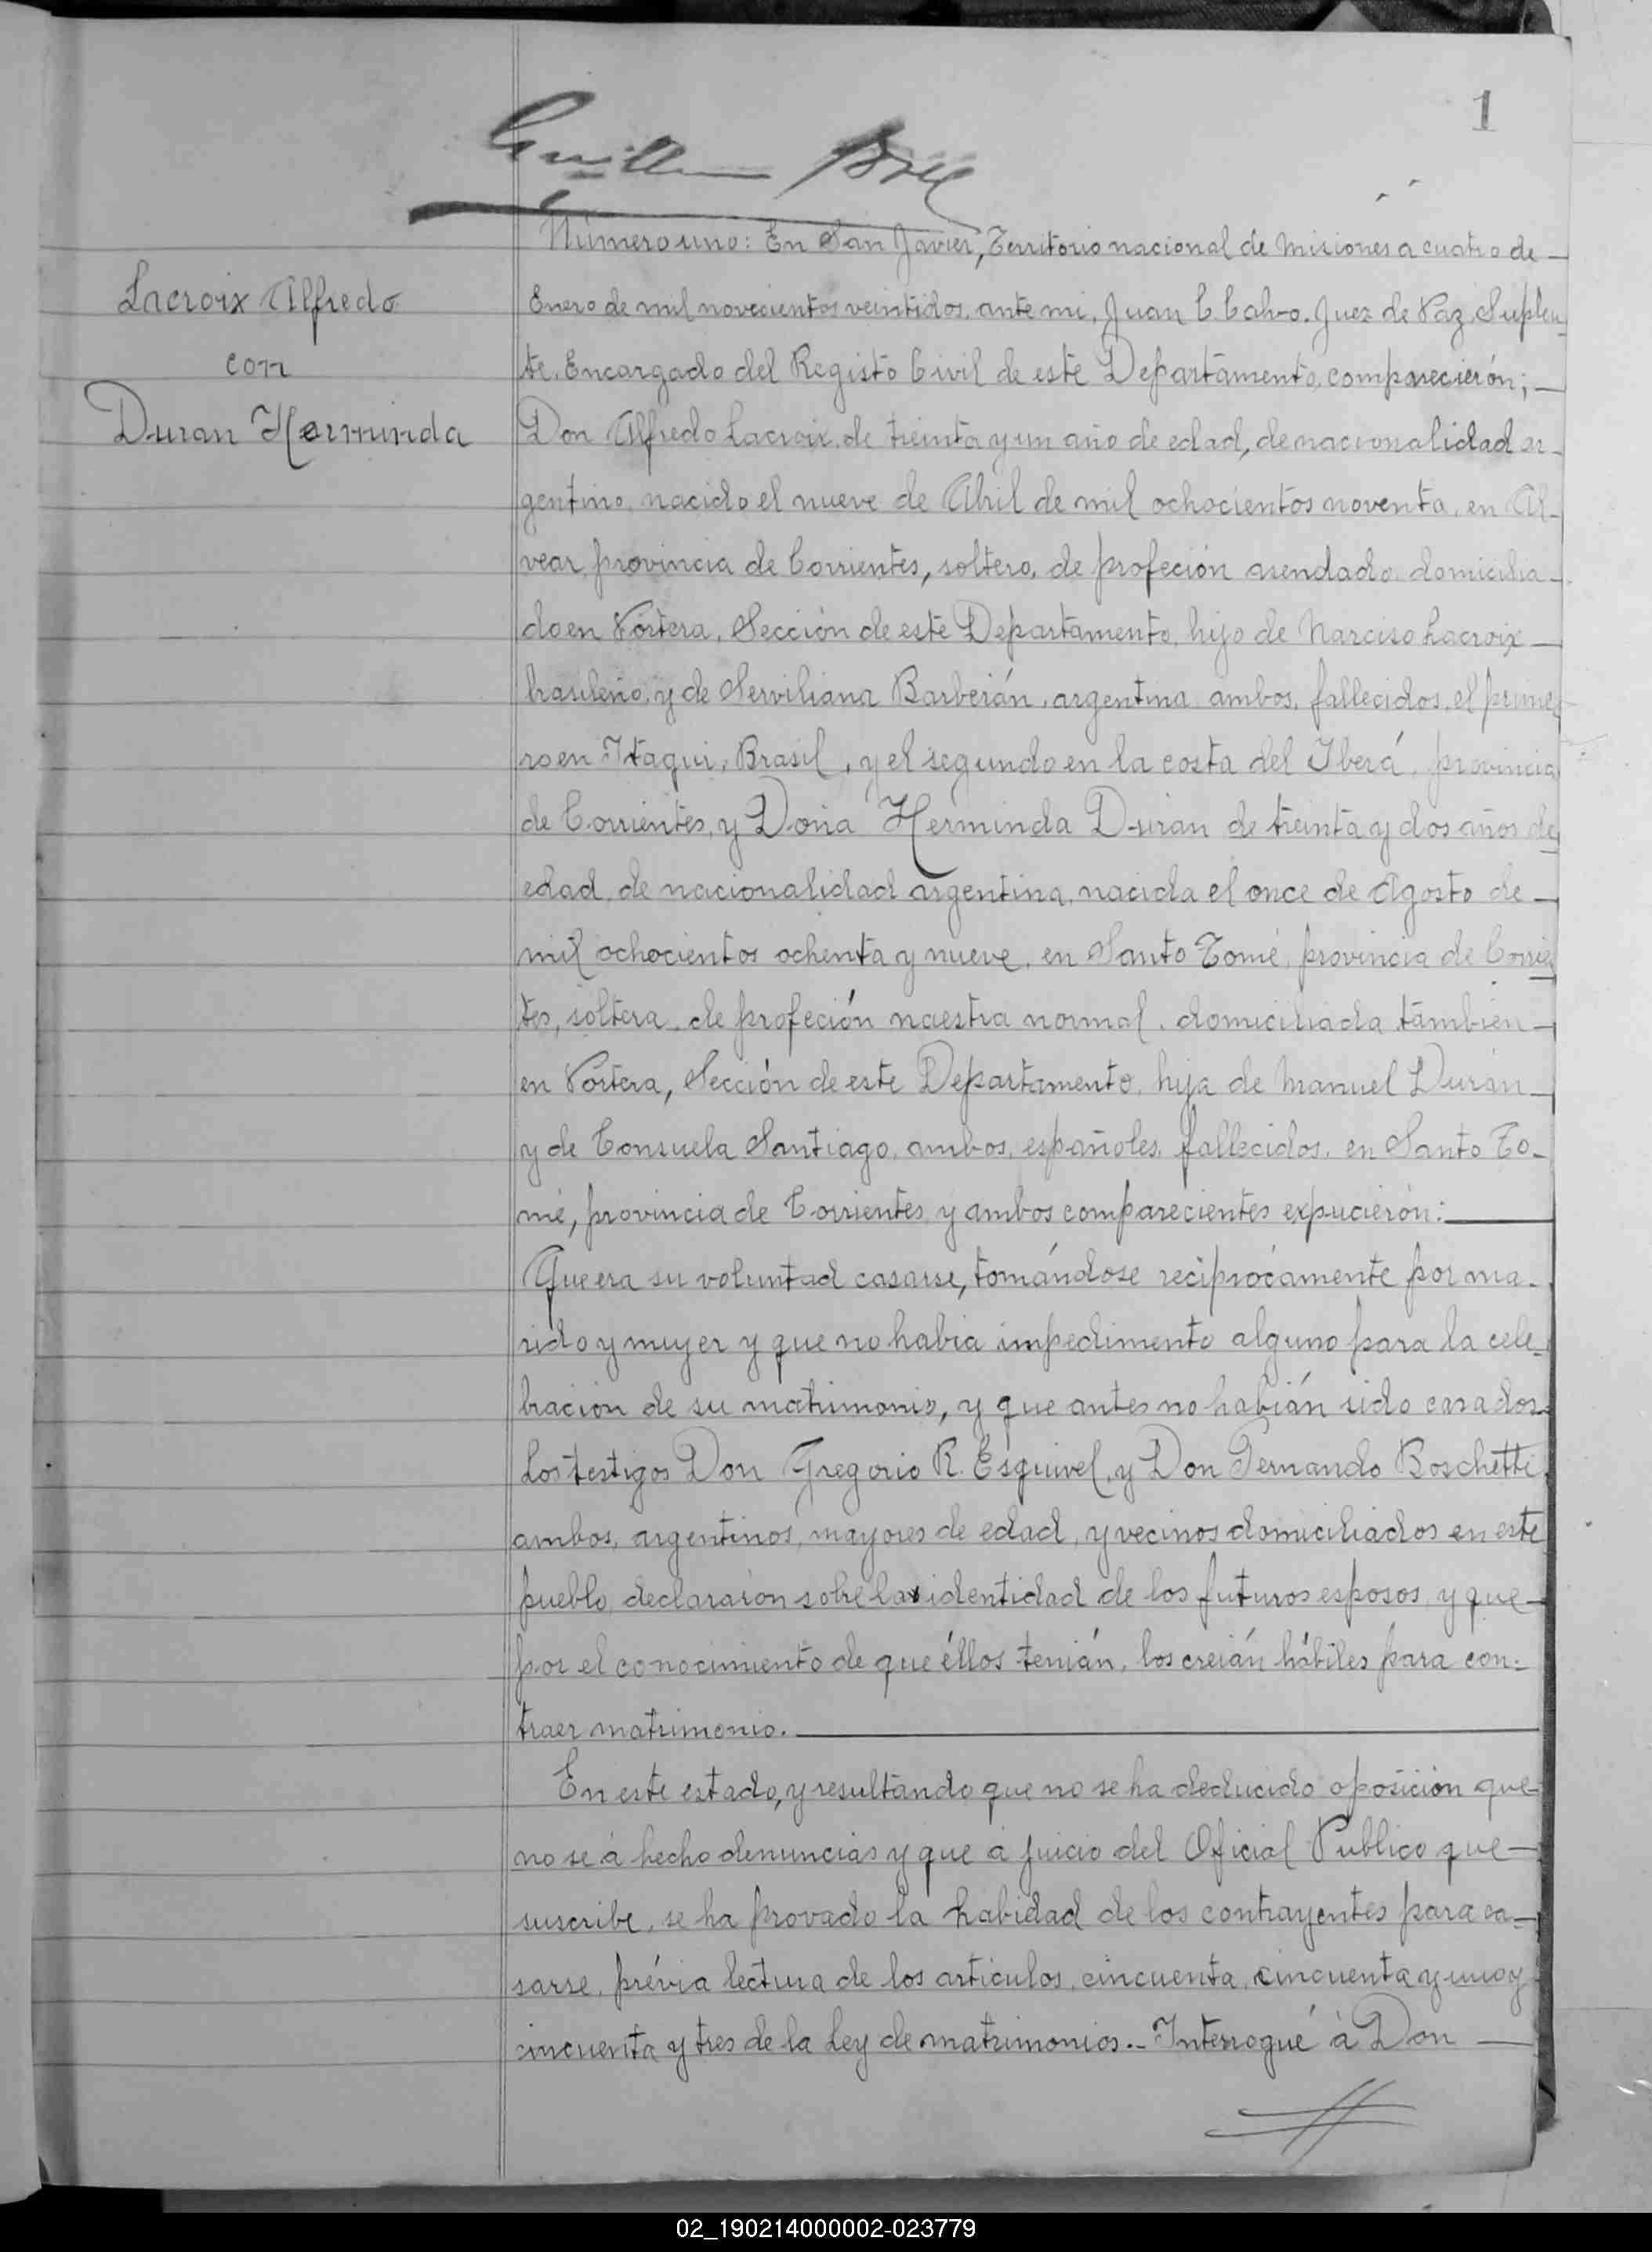 1
Número uno: En San Javier, Territorio nacional de Misiones a cuatro de
Lacroix Alfredo
con
Duran Herminda
Enero de mil novecientos veintidos, ante mi, Juan C. Calvo. Juez de Paz Suplen-
te, Encargado del Registo Civil de este Departamento, comparecierón;
Don Alfredo Lacroix, de treinta y un año de edad, de nacionalidad ar-
gentino, nacido el nueve de Abril de mil ochocientos noventa, en Al-
vear, provincia de Corrientes, soltero, de profeción asendado, domicilia-
do en Portera, Sección de este Departamento, hijo de Narciso Lacroix
brasileño, y de Serviliana Barberán, argentina, ambos, fallecidos, el prime-
ro en Itaqui, Brasil, y el segundo en la costa del Iberá, provincia
de Corrientes, y Doña Herminda Durán de treinta y dos años de
edad, de nacionalidad argentina, nacida el once de Agosto de
mil ochocientos ochenta y nueve, en Santo Tomé, provincia de Corrien-
tes, soltera, de profeción naestra normal, domiciliada también
en Portera, Sección de este Departamento, hija de Manuel Durán
y de Consuela Santiago, ambos, españoles, fallecidos, en Santo To-
mé, provincia de Corrientes, y ambos comparecientes expucierón:
Que era su voluntad casarse, tomándose reciprócamente por ma-
rido y mujer y que no habia impedimento alguno para la cele-
bración de su matrimonio, y que antes no habián sido casados.
Los testigos Don Gregorio R. Esquivel, y Don Fernando Boschetti
ambos, argentinos, mayores de edad, y vecinos domiciliados en este
pueblo, declararón sobre la identidad de los futuros esposos, y que
por el conocimiento de que éllos tenián, los creián hábiles para con-
traer matrimonio.
En este estado, y resultando que no se ha deducido oposición que
no se á hecho denuncias y que á juicio del Oficial Publico que
suscribe, se ha provado la habidad de los contrayentes para ca-
sarse, prévia lectura de los articulos, cincuenta, cincuenta y uno y
cincuenta y tres de la Ley de matrimonios.- Interrogué á Don
02_190214000002-023779